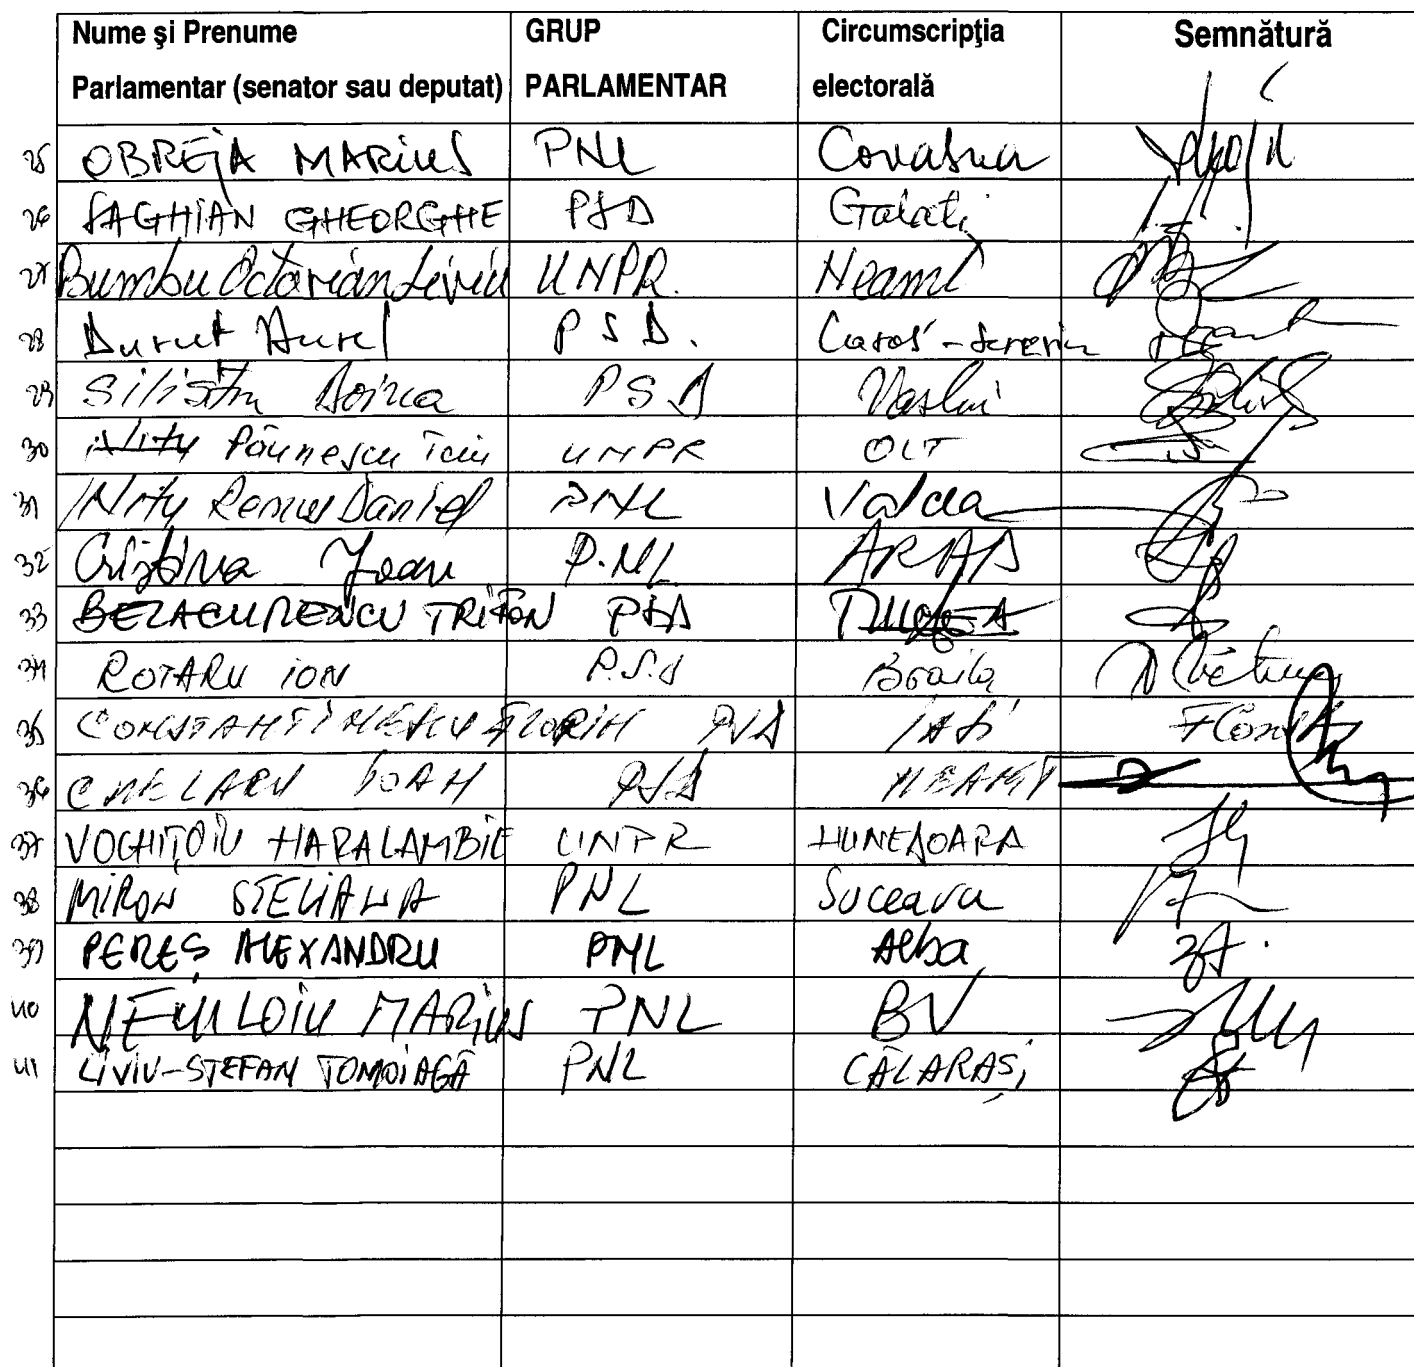 Nume şi Prenume GRUP Circumscripţia Semnătură
Parlamentar (senator sau deputat) PARLAMENTAR electorală
25 OBREJA MARIUS PNL Covasna
26 SAGHIAN GHEORGHE PSD Galati
27 Bumbu Octavian Liviu UNPR. Neamt
28 Durut Aurel PSD. Caras-Severin
29 Silistru Doina PSD Vaslui
30 Păunescu UNPR OLT
31 Nițu Remus Daniel PNL Valcea
32 Cristina Ioan P.NL ARAD
33 TRIFON PSD TULCEA
34 ROTARU ION P.S.D Braila
35 CONSTANTINESCU FLORIN PSD IASI
36 CHELARU IOAN PSD NEAMT
37 VOGHIȚOIU HARALAMBIE UNPR HUNEDOARA
38 MIRON STELIANA PNL Suceava
39 PEREȘ ALEXANDRU PNL Alba
40 NECULOIU MARIUS PNL BV
41 LIVIU-STEFAN TOMOIAGĂ PNL CĂLĂRAȘI